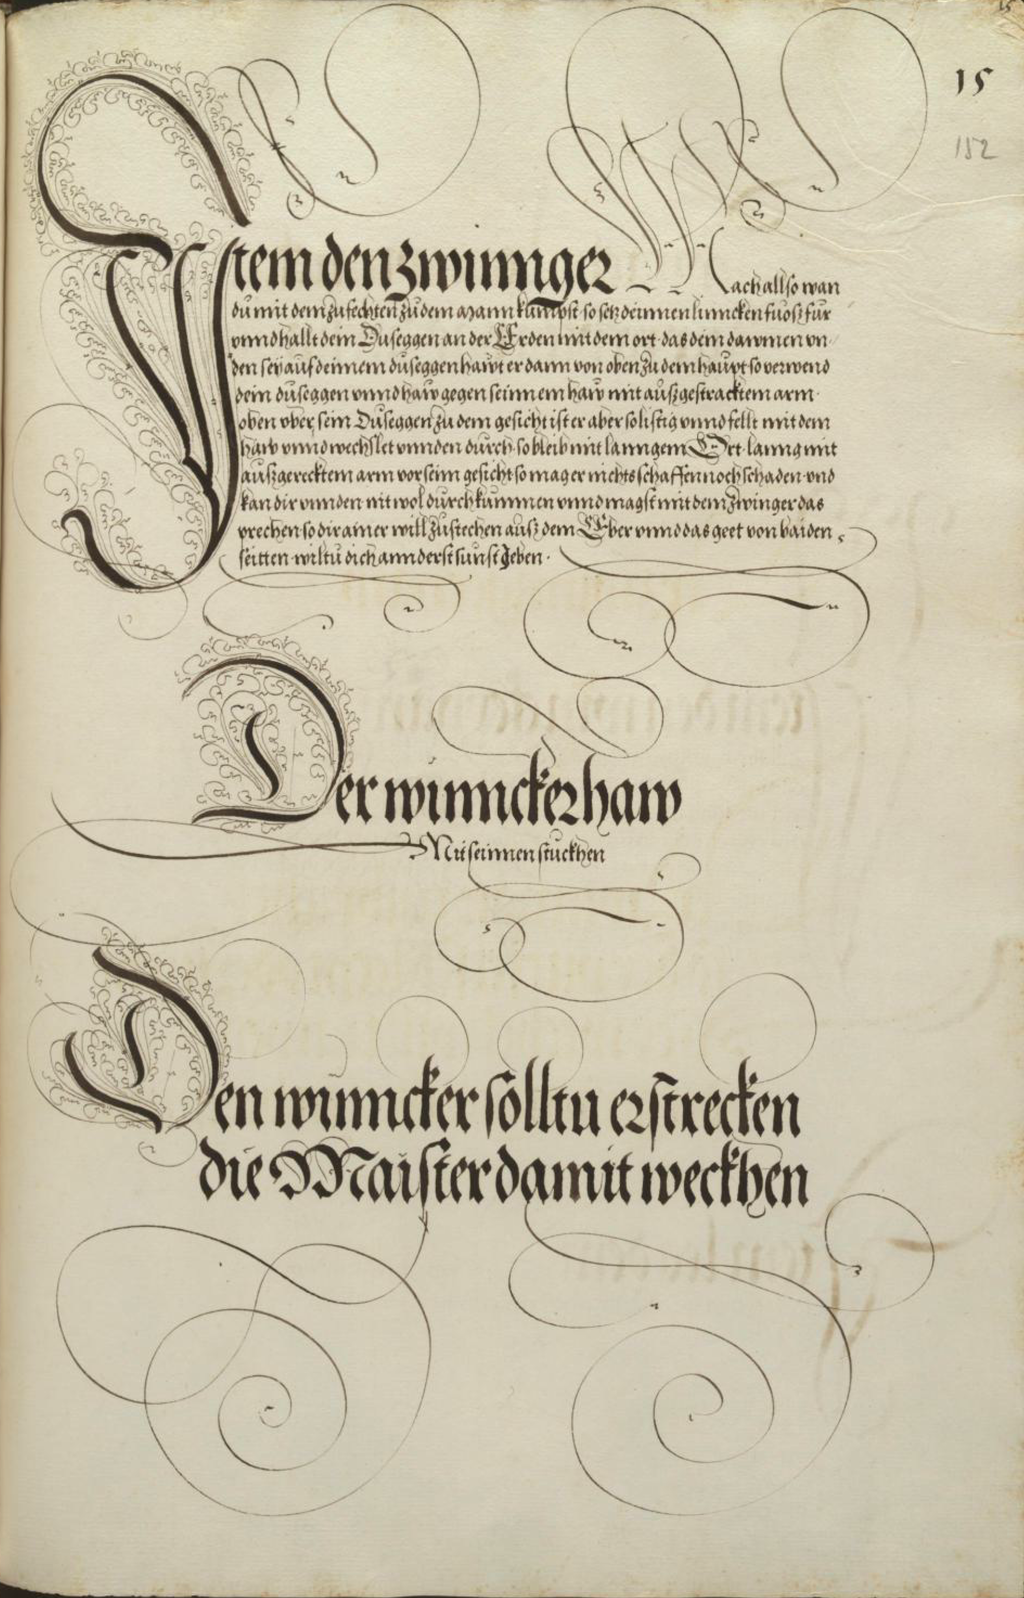 15
152
Item den zwinnger Mach allso wan
du mit dem zufechten zu dem Mann kumpst so setz deinnen linncken fuosz für
vnnd hallt dein Duseggen an der Erden mit dem ort das dein dawmen vn
den sey auf deinnem duseggen hawt er dann von oben zu dem haupt so verwend
dein duseggen vnnd haw gegen seinnem haw mit auszgestracktem arm
oben vber sein Duseggen zu dem gesicht ist er aber so listig vnnd fellt mit dem
haw vnnd wechslet vnnden durch so bleib mit lanngem Ort lanng mit
auszgerecktem arm vor seim gesicht so mag er nichts schaffen noch schaden vnd
kan dir vnnden nit wol durch kummen vnnd magst mit dem zwinger das
prechen so dir ainer will zustechen ausz dem Eber vnnd das geet von baiden
seitten wiltu dich annderst sunst geben
Der winnckerhaw
Mit seinnen stuckhen
Den winncker solltu erstrecken
die Maister damit weckhen